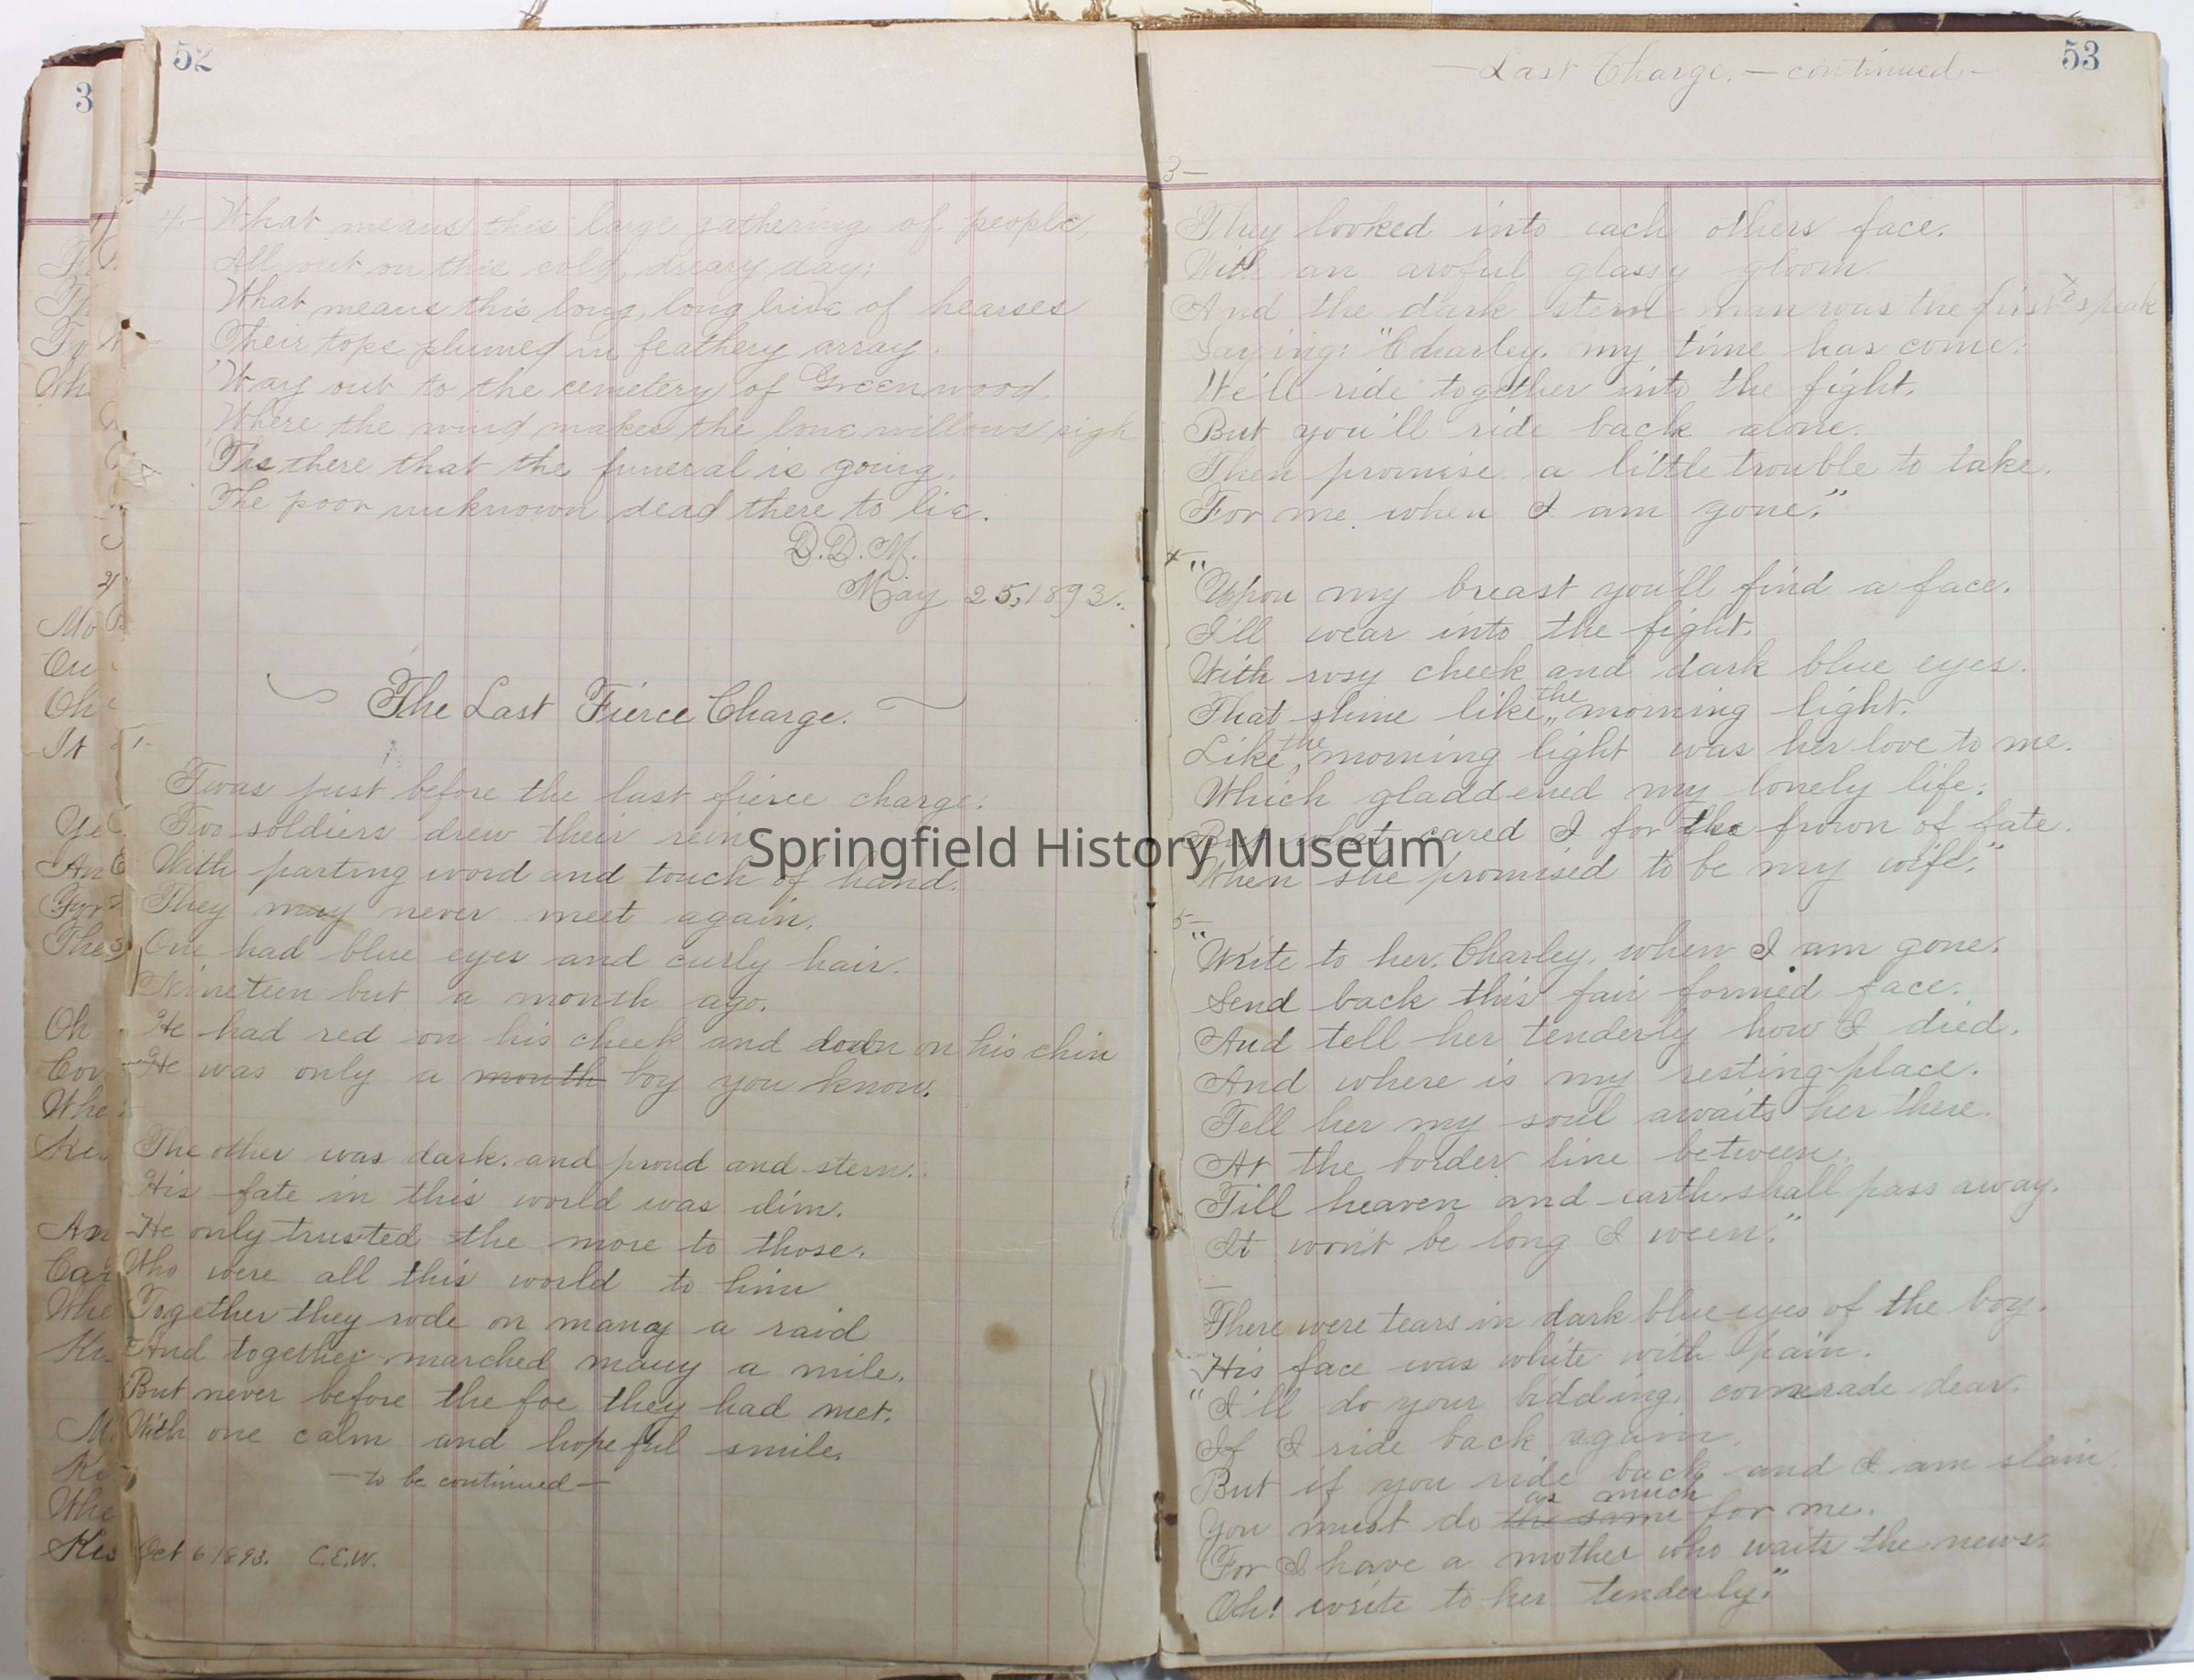 52
4- What means this large gathering of people,
All out on this cold, dreary day;
What means this long, long line of hearses
Their tops plumed in feathery array.
'Way out to the cemetery of Greenwood.
Where the wind makes the lone willows sigh
'Tis there that the funeral is going,
The poor unknown dead there to lie.
D.D.M.
May 25, 1893.
The Last Fierce Charge.
1-
Twas just before the last fierce charge:
Two soldiers drew their rein
With parting word and touch of hand.
They may never meet again.
One had blue eyes and curly hair.
Nineteen but a month ago.
He had red on his cheek and down on his chin
He was only a month boy you know.
The other was dark. and proud and stern.
His fate in this world was dim.
He only trusted the more to those.
Who were all this world to him
Together they rode on many a raid
And together marched many a mile.
But never before the foe they had met.
With one calm and hopeful smile.
—to be continued—
Oct 6 1893. C.E.W.
53
—Last Charge.—continued—
3—
They looked into each others face.
With an awful glassy gloom.
And the dark stern man was the first to speak
Saying: "Charley. my time has come.
We'll ride together into the fight.
But you'll ride back alone.
Then promise a little trouble to take.
For me when I am gone."
4-
"Upon my breast you'll find a face.
I'll wear into the fight.
With rosy cheek and dark blue eyes.
That shine like the morning light.
Like the morning light was her love to me.
Which gladdened my lonely life.
But what cared I for the frown of fate.
When she promised to be my wife."
5-
"Write to her. Charley, when I am gone.
Send back this fair formed face.
And tell her tenderly how I died.
And where is my resting-place.
Tell her my soul awaits her there.
At the border line between.
Till heaven and earth shall pass away.
It won't be long I ween."
There were tears in dark blue eyes of the boy.
His face was white with pain.
"I'll do your bidding, comerade dear.
If I ride back again.
But if you ride back and I am slain
You must do the same as much for me.
For I have a mother who waits the news.
Oh! write to her tenderly."
Springfield History Museum
3